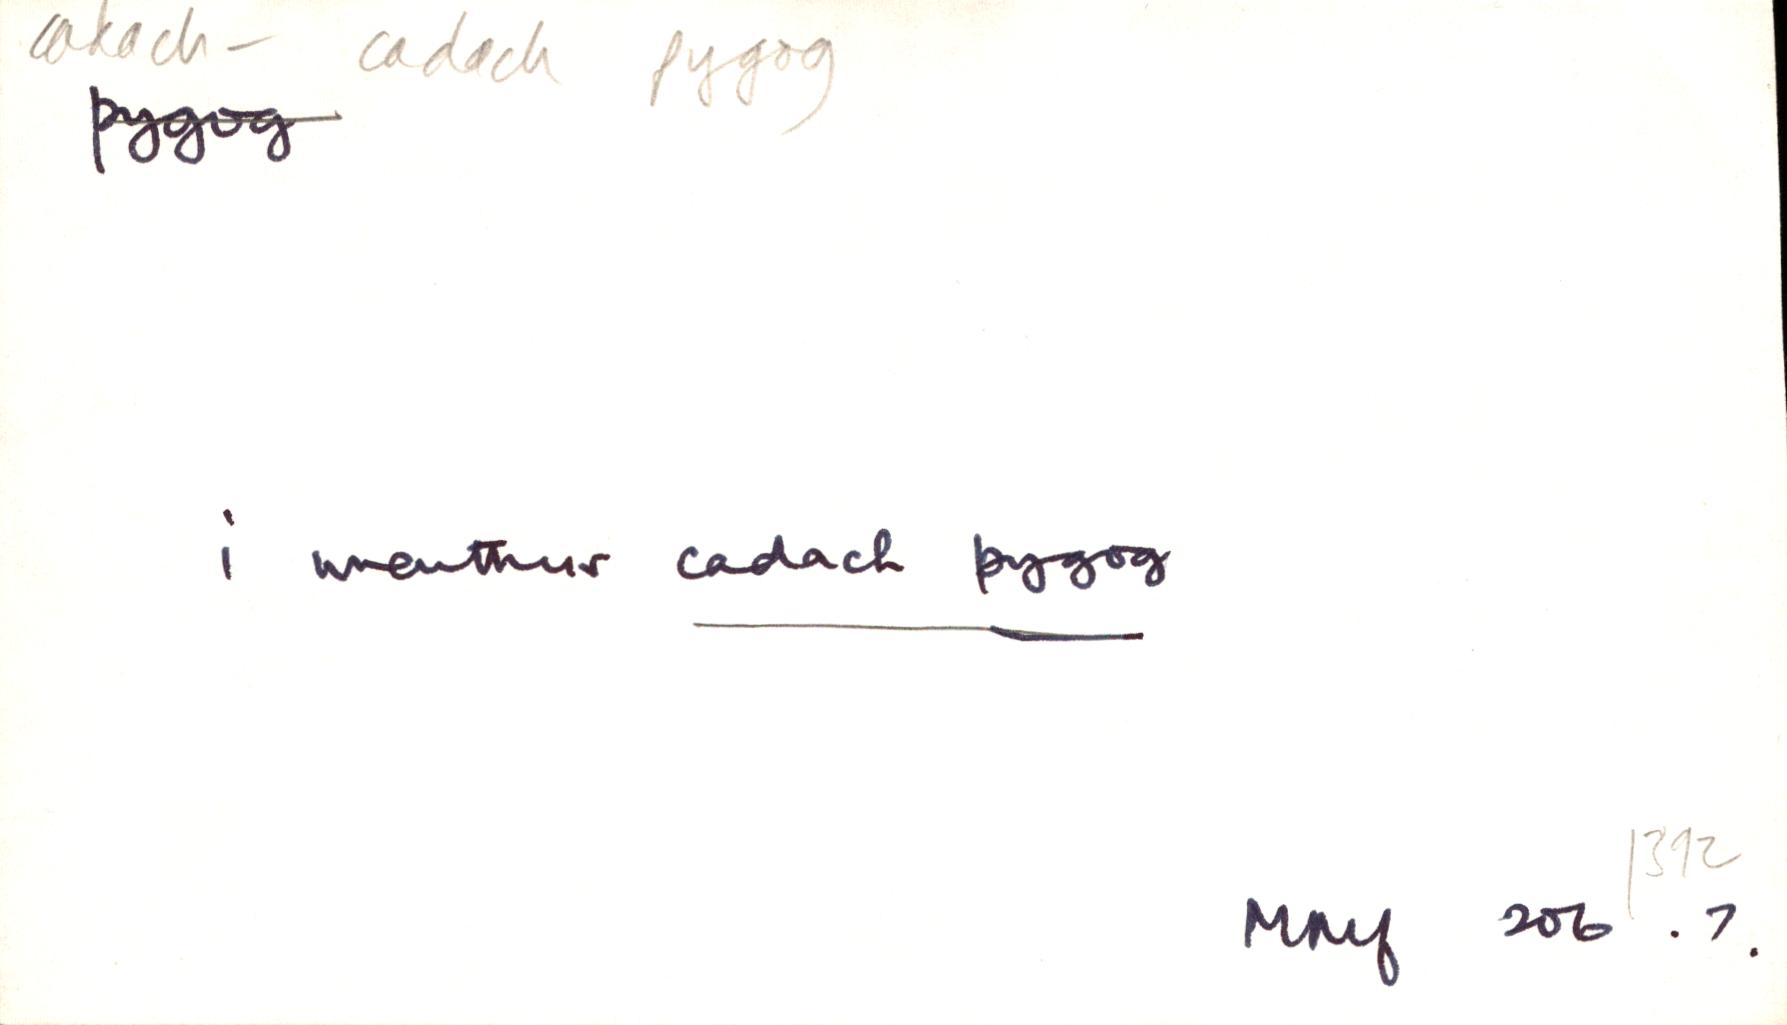 cadach – cadach pygog
pygog
i wneuthur cadach pygog
1392
MMf 206 . 7.